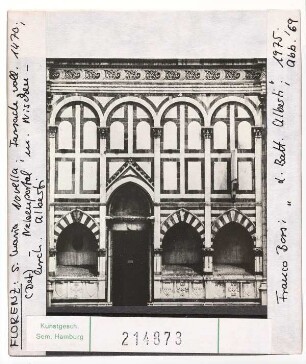 FLORENZ: S. Maria Novella; Fassade voll. 1470;
(Det) Nebenportal m. Nischen –
durch Alberti
Franco Borsi " L. Batt. Alberti"; 1975.
Abb. 69
Kunstgesch.
Sem. Hamburg
214873